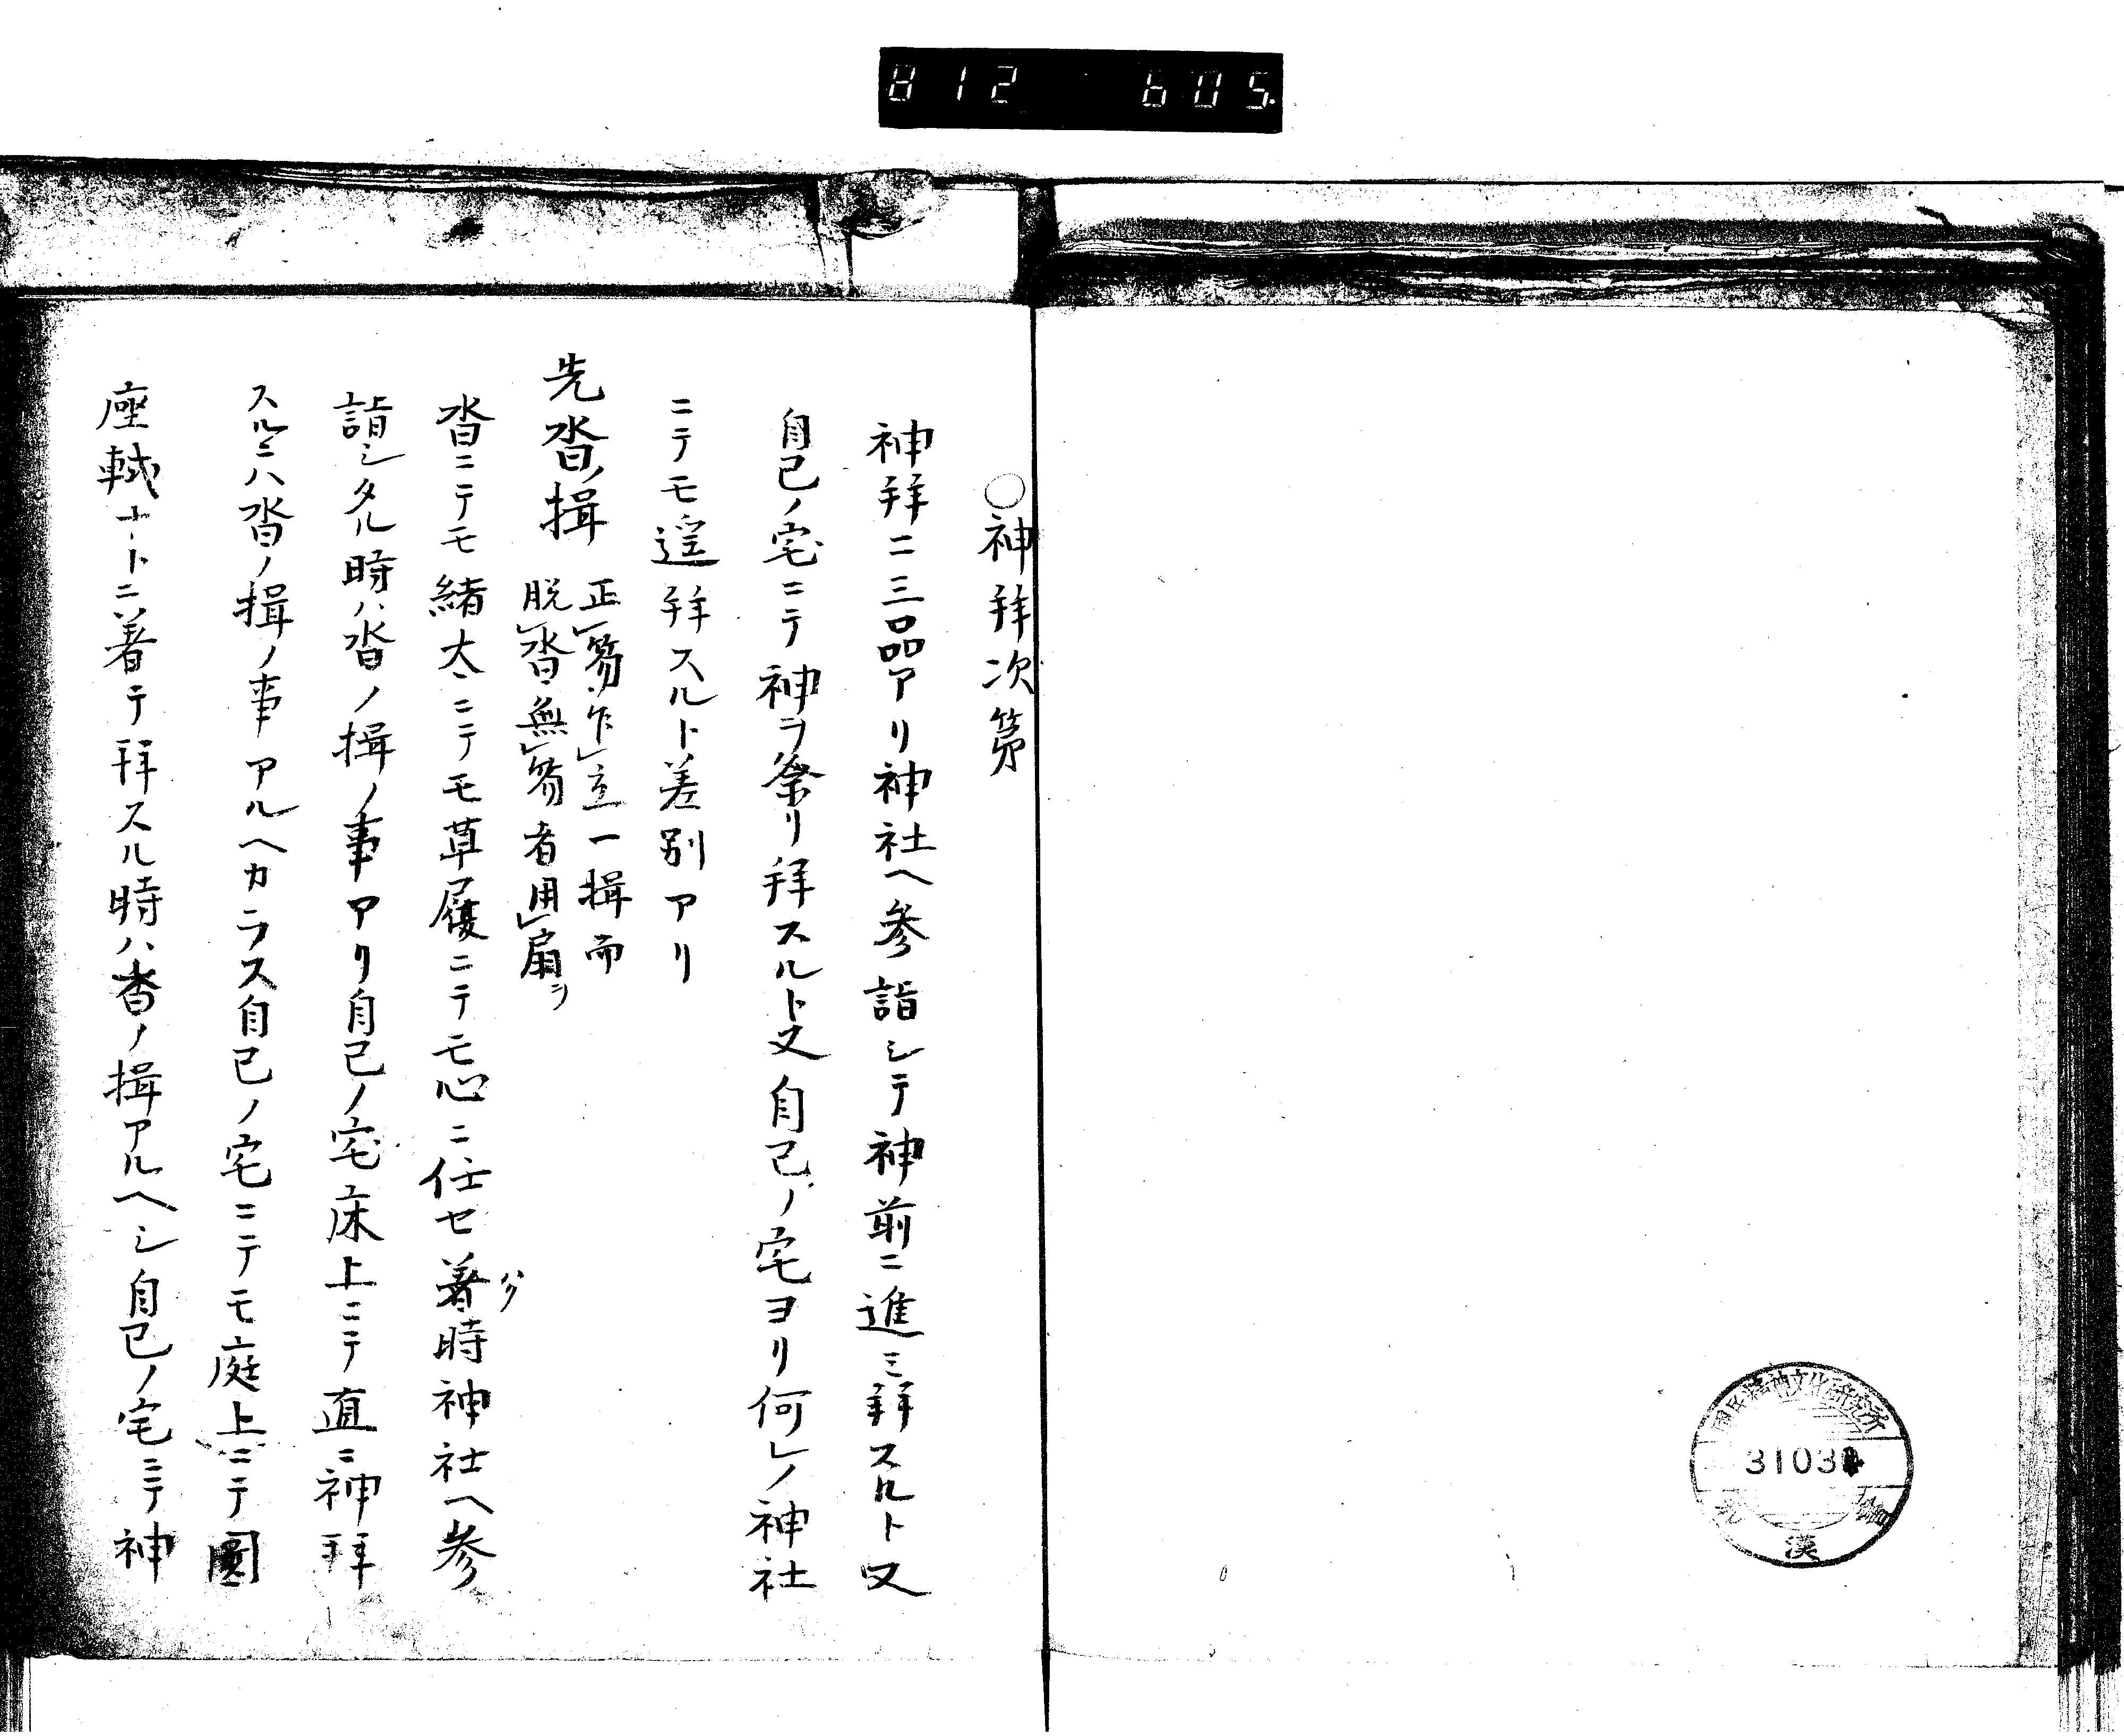 812 605.
○神拜次第
神拜ニ三品アリ神社ヘ参詣シテ神前ニ進ミ拜スルト又
自己ノ宅ニテ神ヲ祭リ拜スルト又自己ノ宅ヨリ何レノ神社
ニテモ遥拜スルト差別アリ
先沓ノ揖
正レ笏乍レ立一揖而
脱レ沓無レ笏者用レ扇ヲ
沓ニテモ緒太ニテモ草履ニテモ心ニ任セ著ハク時神社ヘ参
詣シタル時ハ沓ノ揖ノ事アリ自己ノ宅床上ニテ直ニ神拜
スルニハ沓ノ揖ノ事アルヘカラス自己ノ宅ニテモ庭上ニテ圓
座軾ナトニ著テ拜スル時ハ沓ノ揖アルヘシ自己ノ宅ニテ神
國民精神文化研究所
3103
漢